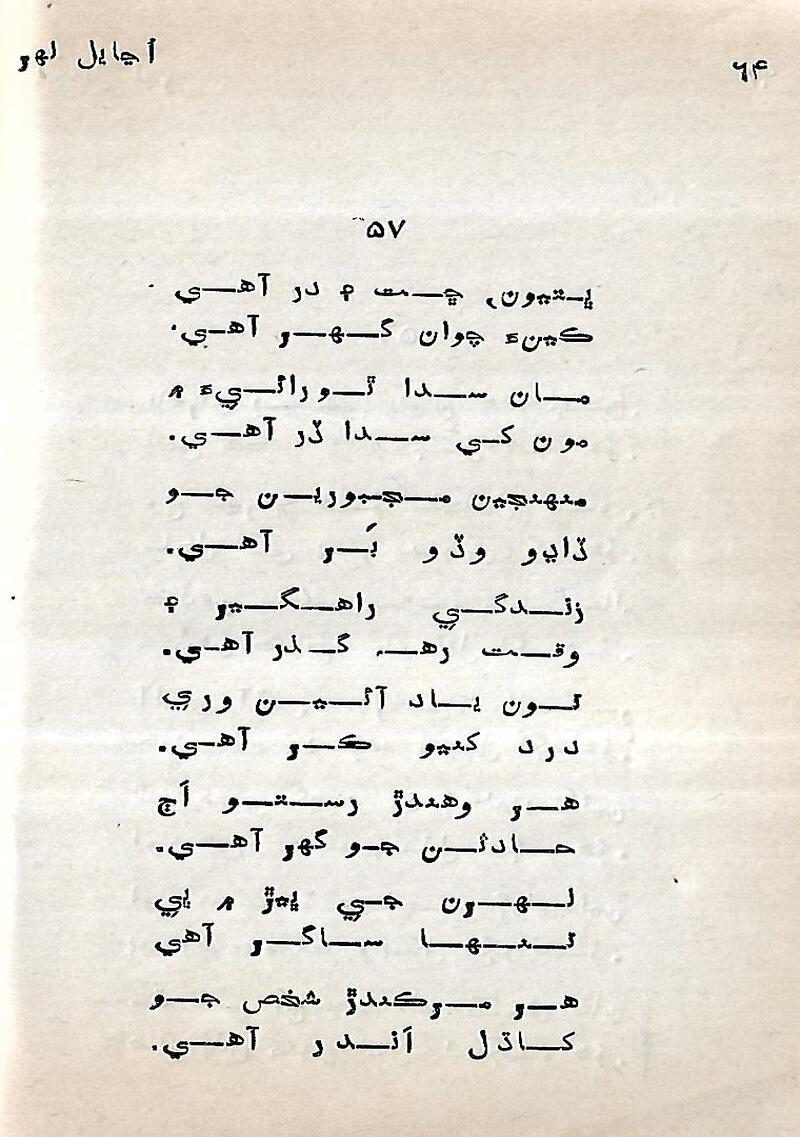 ۶۴
اڃايل لهر
۵۷
ڀتيون، ڇت ۽ در آهي
ڪيئن چوان گهر آهي.
مان سدا ٿورائيءَ ۾
مون کي سدا ڏر آهي.
منهنجين مجبورين جو
ڏاڍو وڏو بَر آهي.
زندگي راهگير ۽
وقت رهہ گذر آهي.
تون ياد آئين وري
درد کنيو ڪر آهي.
هر وهندڙ رستو اَڄ
حادثن جو گهر آهي.
لهرن جي ڀيڙ ۾ ڀي
تنها ساگر آهي
هر مرڪندڙ شخص جو
کاڌل اَندر آهي.